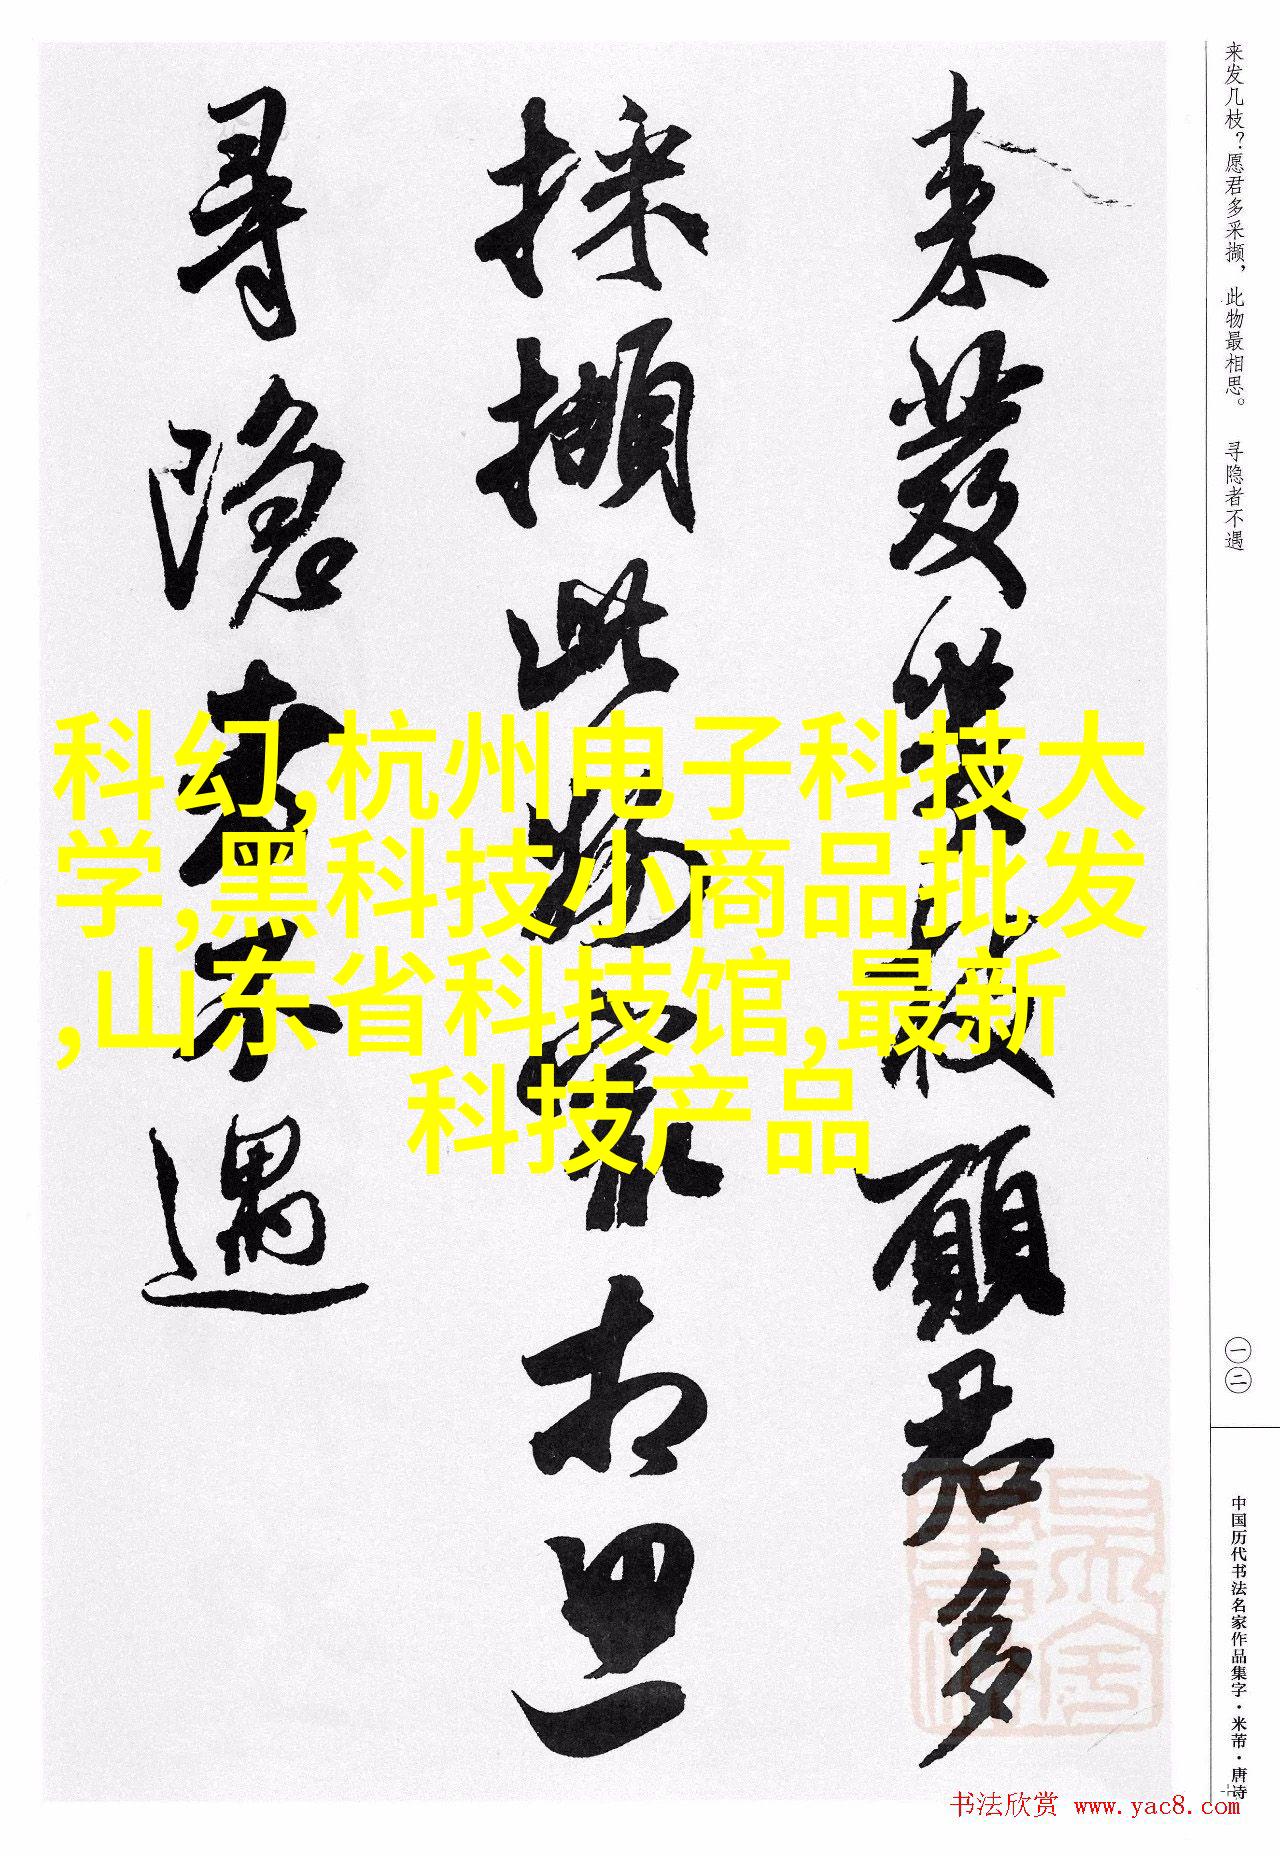 来发几枝？愿君多采撷，此物最相思。 寻隐者不遇
來發幾枝願君多
採擷此物最相思
尋隱者不遇
科幻,杭州电子科技大
学,黑科技小商品批发
,山东省科技馆,最新
科技产品
一二
中国历代书法名家作品集字·米芾·唐诗
书法欣赏 www.yac8.com